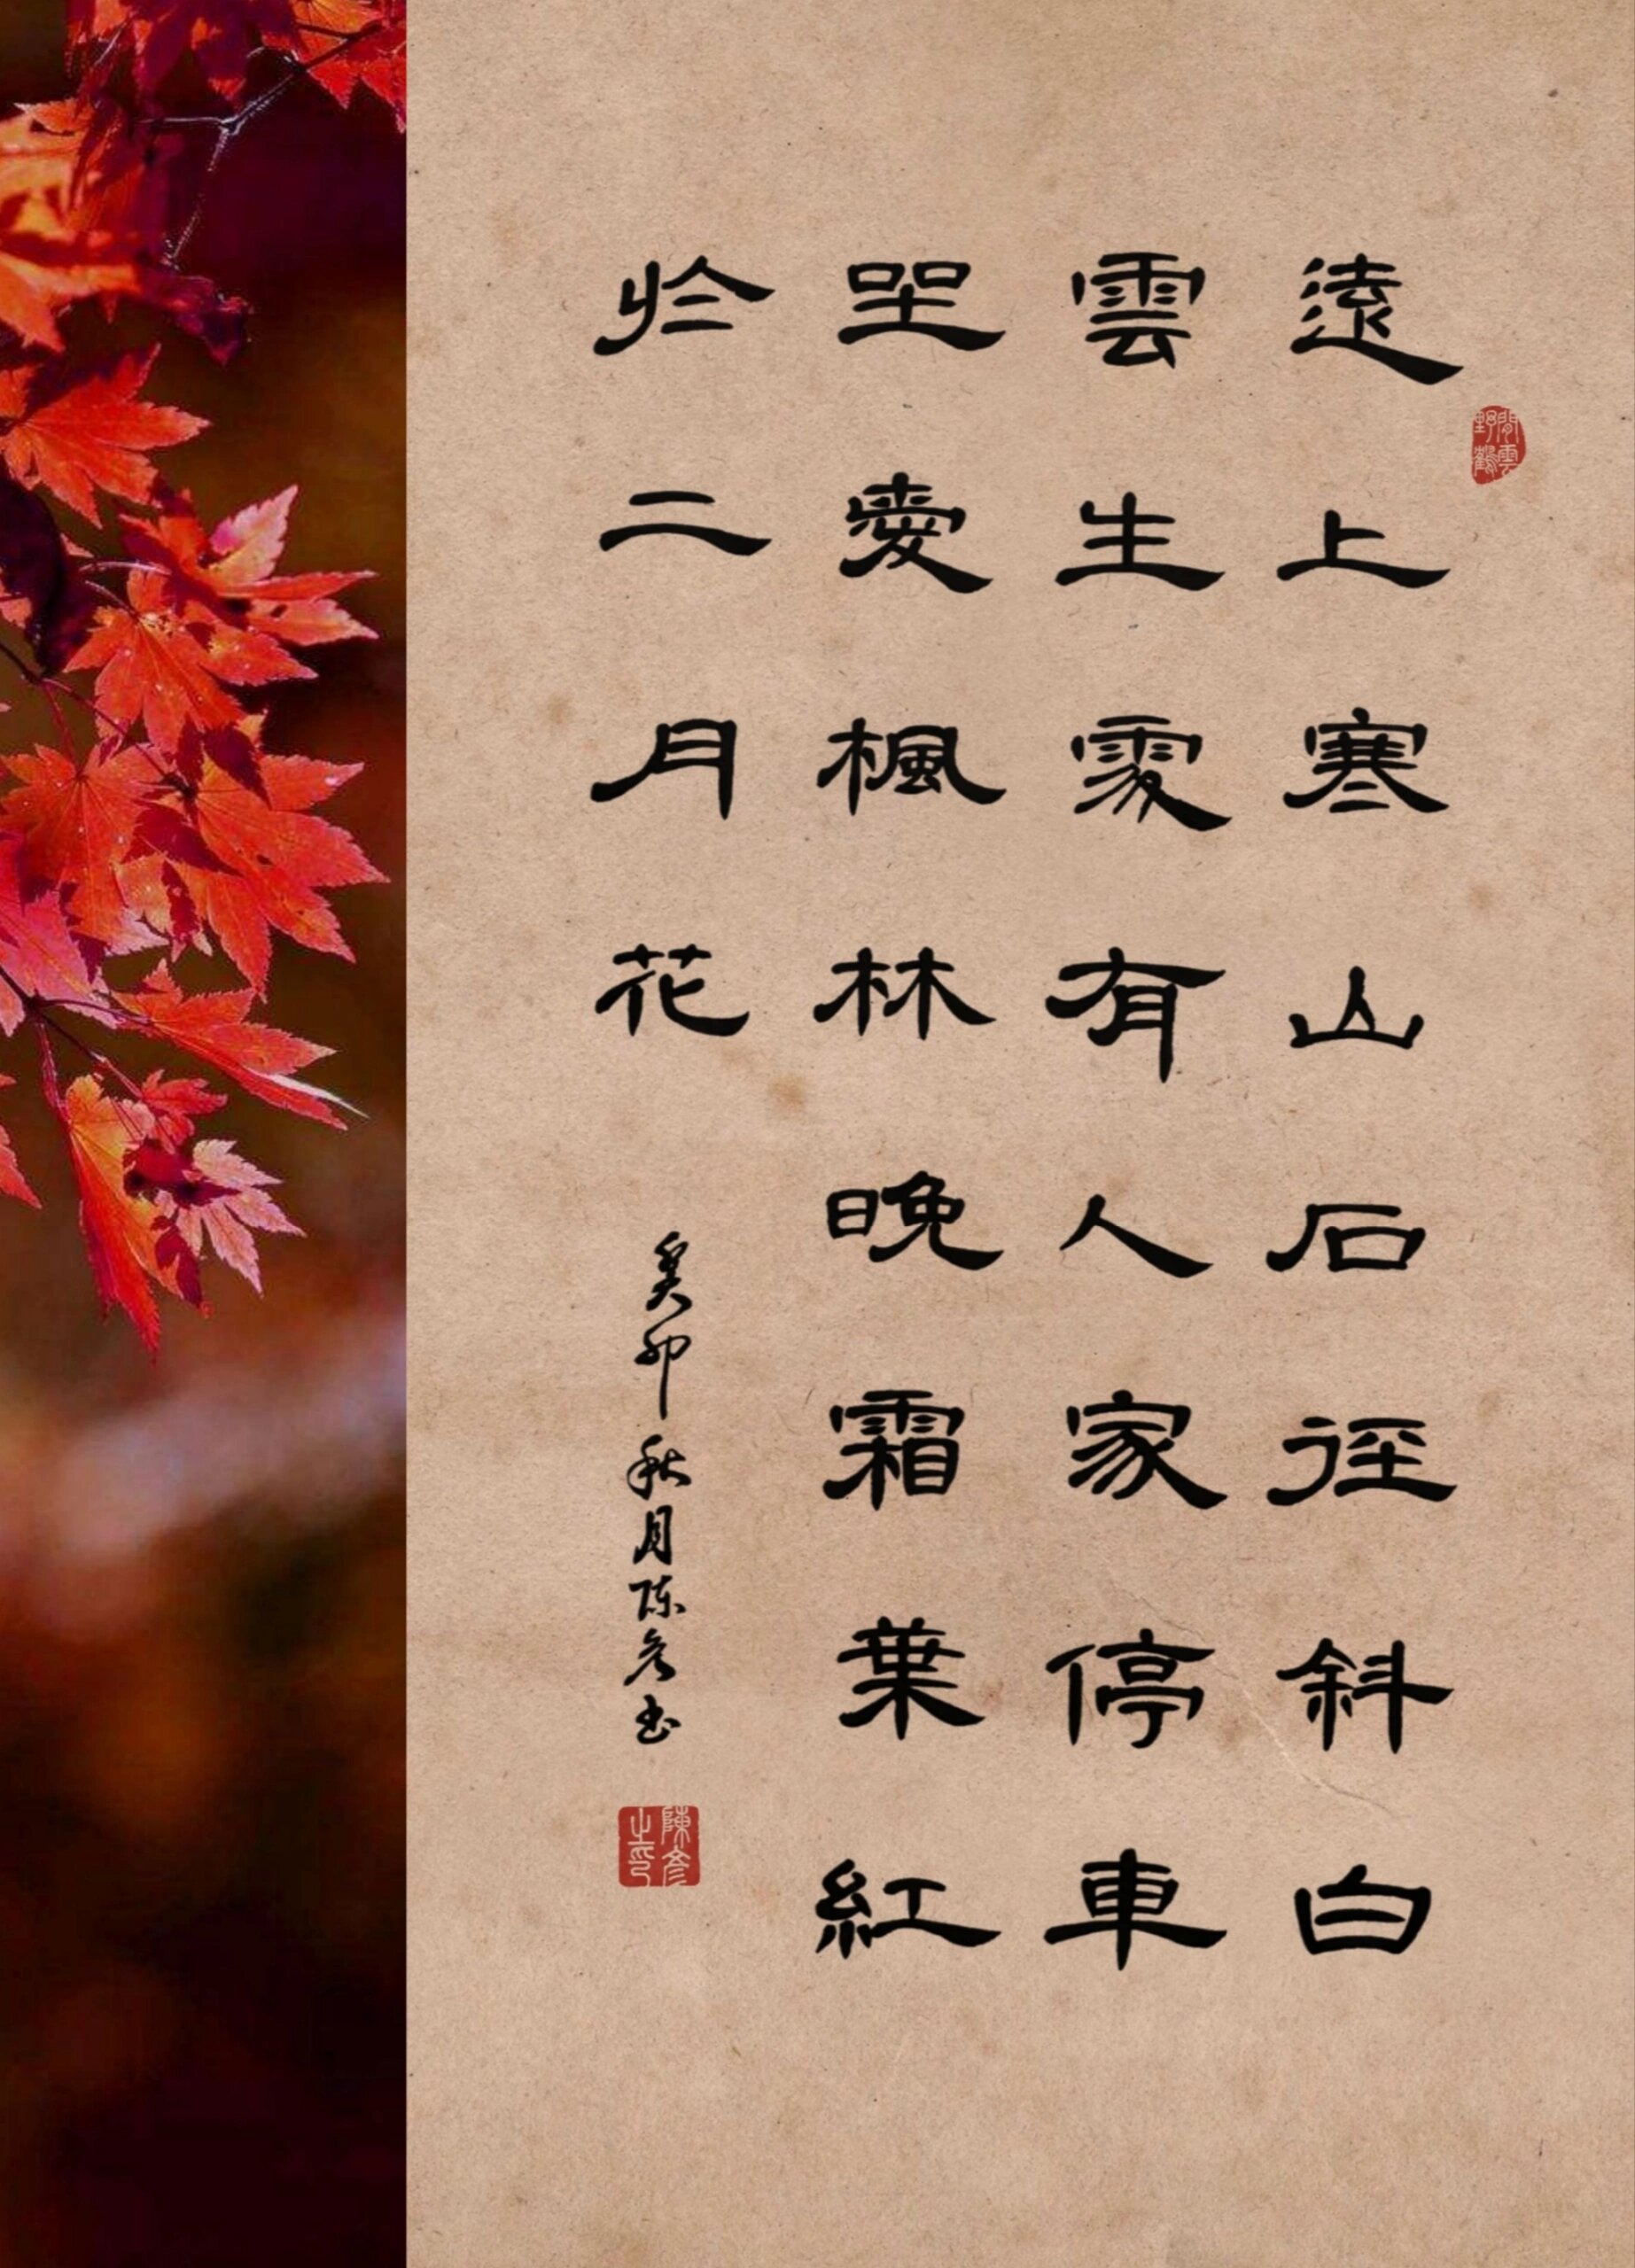 遠上寒山石徑斜白
雲生處有人家停車
坐愛楓林晚霜葉紅
於二月花
癸卯秋月陈彦书
閒雲野鶴
陳彦之印